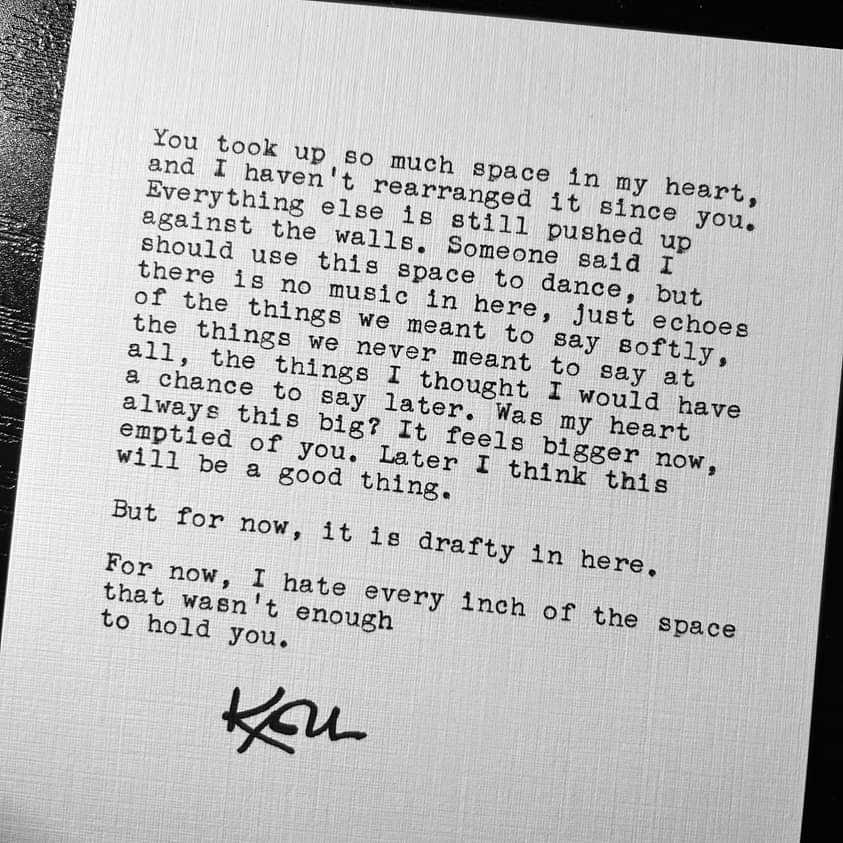 You took up so much space in my heart,
and I haven't rearranged it since you.
Everything else is still pushed up
against the walls. Someone said I
should use this space to dance, but
there is no music in here, just echoes
of the things we meant to say softly,
the things we never meant to say at
all, the things I thought I would have
a chance to say later. Was my heart
always this big? It feels bigger now,
emptied of you. Later I think this
will be a good thing.
But for now, it is drafty in here.
For now, I hate every inch of the space
that wasn't enough
to hold you.